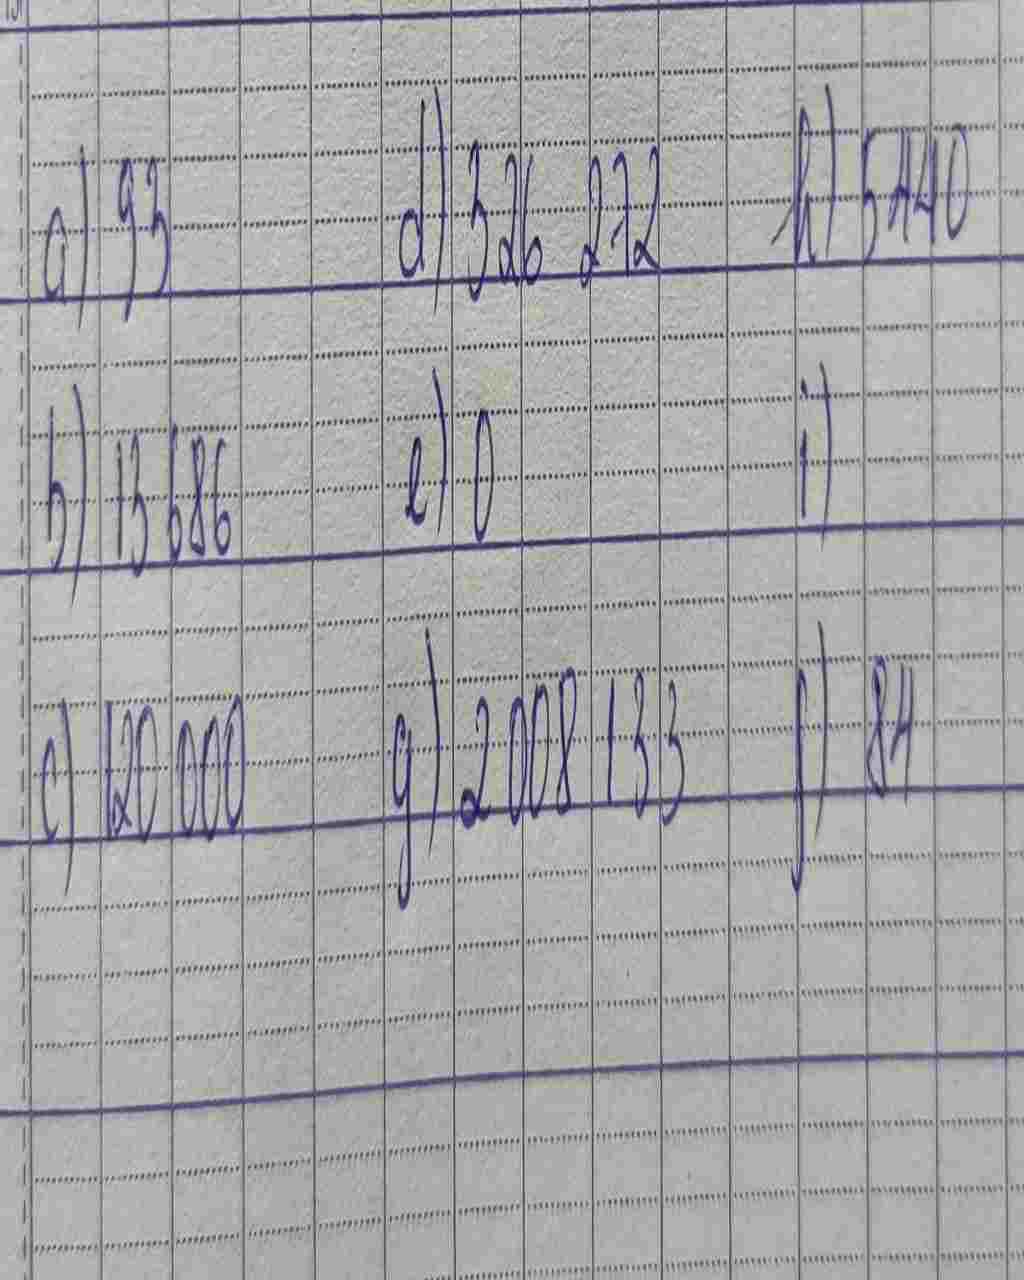 a) 93
b) 13 686
c) 120 000
d) 326 272
e) 0
g) 2 008 133
h) 5440
i)
j) 84